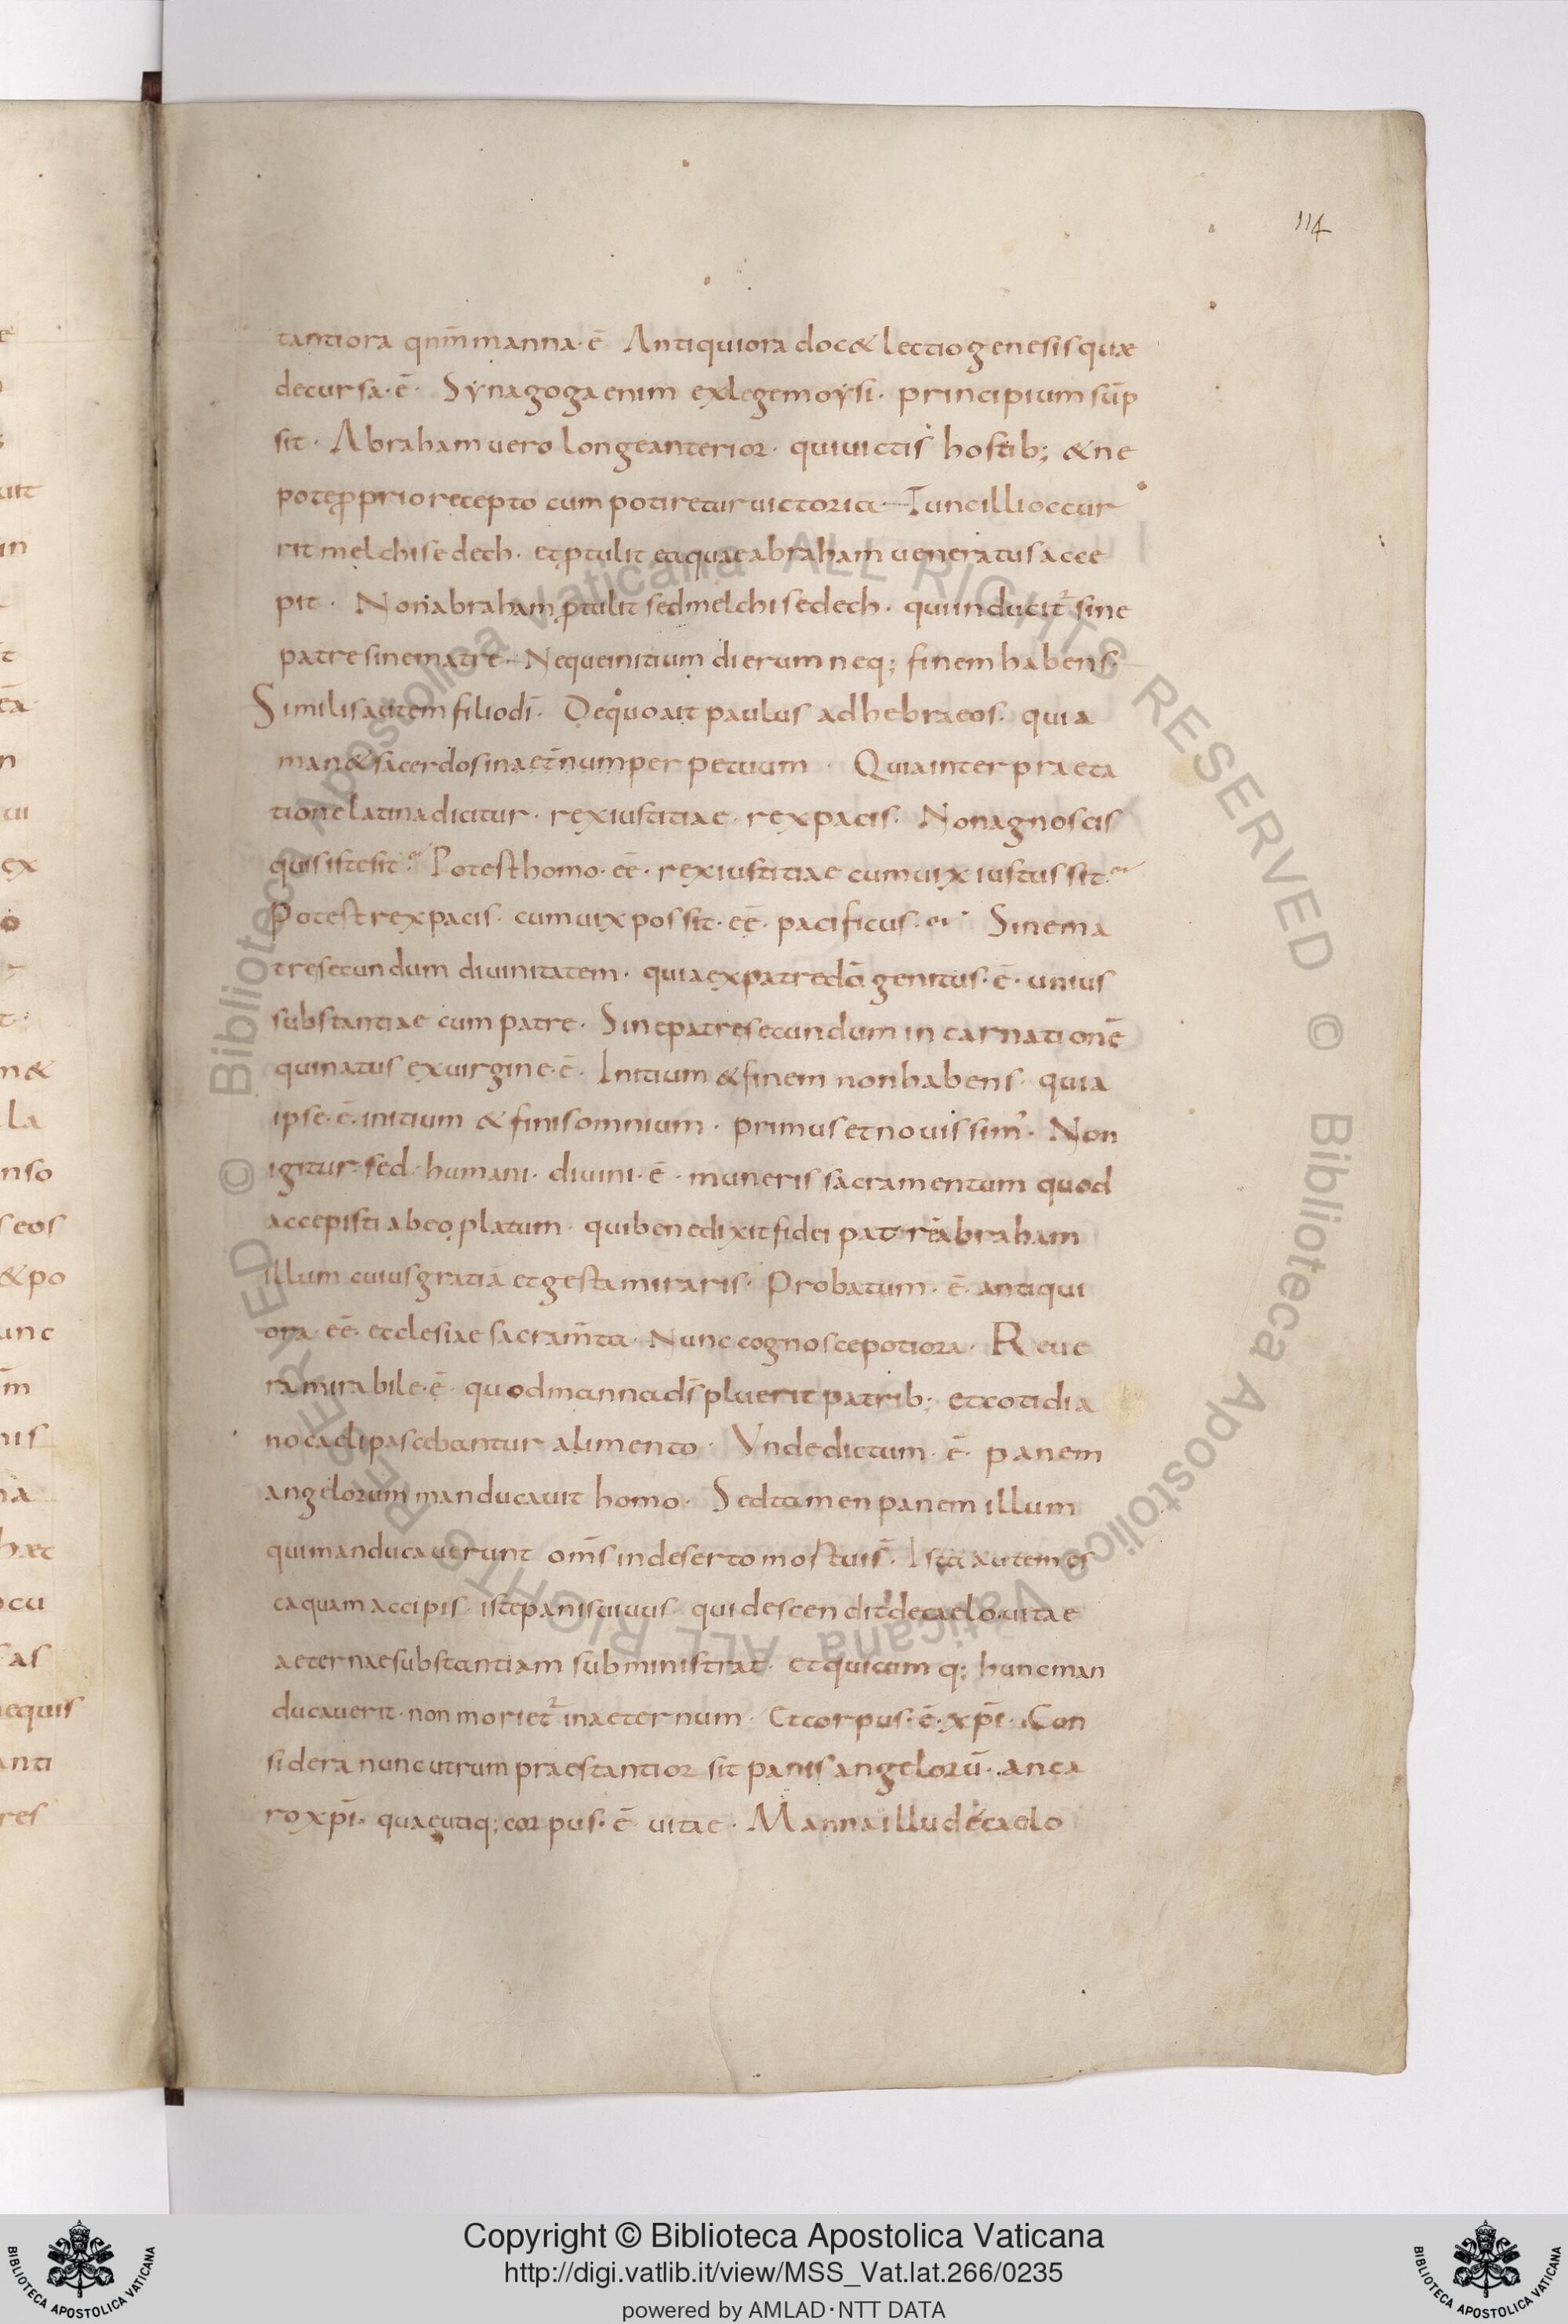 114
tantiora qnm̄ manna·ē Antiquiora doc& lectio genesis quæ
decursa·ē· Synagoga enim ex lege moysi· principium sūp
sit· Abraham uero longe anterior· qui uictis hostib; & ne
pote proprio recepto cum potiretur uictoria Tunc illi occur
rit melchisedech· et ꝓtulit ea quae abraham ueneratus acce
pit· Non abraham ꝓtulit sed melchisedech· qui inducit᷑ sine
patre sine matre· Neque initium dierum neq; finem habens·
Similis autem filio dī· De quo ait paulus ad hebraeos· quia
man& sacerdos in aet̄num perpetuum· Quia interpraeta
tione latina dicitur· rex iustitiae· rex pacis· Non agnoscis
quis iste sit· Potest homo·eē· rex iustitiae cum uix iustus sit·
Potest rex pacis· cum uix possit·eē· pacificus· Sine ma
tre secundum diuinitatem· quia ex patre dō genitus·ē· unius
substantiae cum patre· Sine patre secundum incarnationē
qui natus ex uirgine·ē· Initium & finem non habens· quia
ipse·ē·initium & finis omnium· primus et nouissim᾽· Non
igitur·sed·humani· diuini·ē· muneris sacramentum quod
accepisti ab eo platum· qui benedixit fidei patrē abraham
illum cuius gratiā et gesta miraris· Probatum·ē· antiqui
ora·eē· ecclesiae sacram̄ta· Nunc cognosce potiora· Reue
ra mirabile·ē· quod manna ds̄ pluerit patrib; et cotidia
no caeli pascebantur alimento· Vnde dictum·ē· panem
angelorum manducauit homo· Sed tamen panem illum
qui manducauerunt om̄s in deserto mortui s̄· Ista autem es
ca quam accipis· iste panis uiuus· qui descendit de caelo·uitae
aeternae substantiam subministrat· et quicum q; hunc man
ducauerit· non moriet᷑ in aeternum· Et corpus·ē·xp̄i· Con
sidera nunc utrum praestantior sit panis angelorū· an ca
ro xp̄i· quae utiq; corpus·ē uitae· Manna illud e caelo
© Biblioteca Apostolica Vaticana ALL RIGHTS RESERVED © Biblioteca Apostolica Vaticana ALL RIGHTS RESERVED
Copyright © Biblioteca Apostolica Vaticana
http://digi.vatlib.it/view/MSS_Vat.lat.266/0235
powered by AMLAD·NTT DATA
BIBLIOTECA APOSTOLICA VATICANA
BIBLIOTECA APOSTOLICA VATICANA